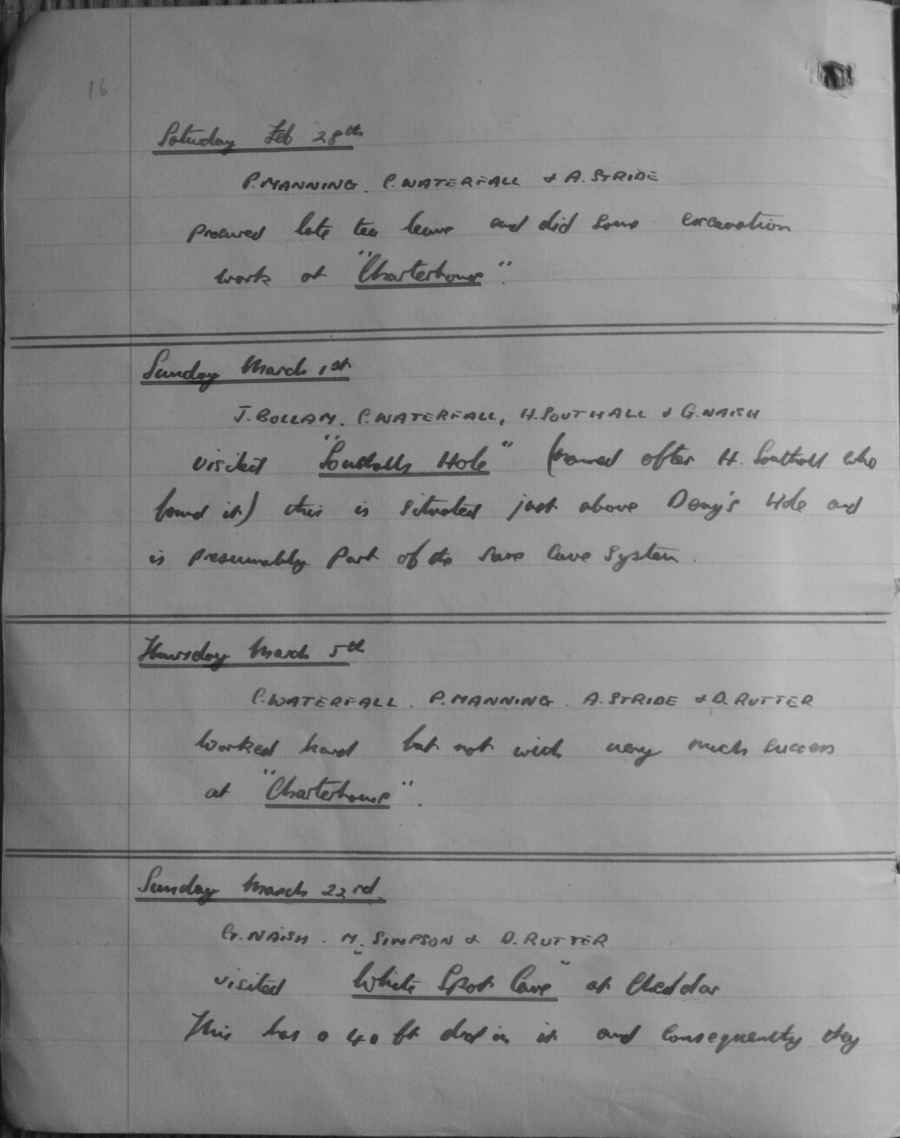 16
Saturday Feb 28th
P. MANNING. C. WATERFALL & A. STRIDE
procured late tea leave and did some excavation
work at "Charterhouse".
Sunday March 1st
J. BOLLAM. C. WATERFALL, H. SOUTHALL & G. NAISH
visited "Southalls Hole" (named after H. Southall who
found it) this is situated just above Denny's Hole and
is presumably part of the same Cave System.
Thursday March 5th
C. WATERFALL. P. MANNING. A. STRIDE & D. RUTTER
worked hard but not with very much success
at "Charterhouse".
Sunday March 22rd
G. NAISH. M. SIMPSON & D. RUTTER
visited "White Spot Cave" at Cheddar
This has a 40 ft drop in it and consequently they